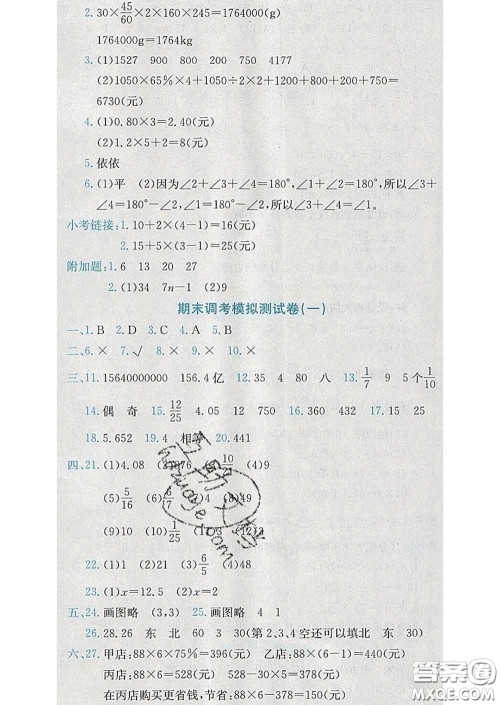 2. 30×45/60×2×160×245=1764000(g)
1764000g=1764kg
3. (1)1527 900 800 750 4177
(2)1050×65%×4+1050÷2×2+1200+800+800+750=
6730(元)
4. (1)0.80×3=2.40(元)
(2)1.2×5+2=8(元)
5. 依依
6. (1)平 (2)因为∠2+∠3+∠4=180°,∠1+∠2=180°,所以∠3+
∠4=180°-∠2,∠1=180°-∠2,所以∠3+∠4=∠1。
小考链接:1. 10+2×(4-1)=16(元)
2. 15+5×(3-1)=25(元)
附加题:1. 6 13 20 27
2. (1)34 7n-1 (2)9
期末调考模拟测试卷(一)
一、1. B 2. D 3. A 4. C 5. B
二、6. × 7. √ 8. × 9. × 10. ×
三、11. 15640000000 156.4亿 12. 35 4 80 八 13. 1/7 9 5个1/10
14. 偶 奇 15. 12/25 4.05 12 750 16. 360 432 17. 15 25
18. 5.652 19. 4 相等 20. 441
四、21. (1)4.08 (3)10/9 (4)9
(5)5/16 (6)6/7 (7)4 (8)49
(9)10 (10)1/25 (11)3 (12)3
22. (1)21 (2)31 (3)6/5 (4)48
23. (1)x=12.5 (2)x=2
五、24. 画图略 (3,3) 25. 画图略 4 1
26. 28.26 东 北 60 3 30(第2、3、4空还可以填北 东 30)
六、27. 甲店:88×6×75%=396(元) 乙店:88×(6-1)=440(元)
丙店:88×6=528(元) 528-30×5=378(元)
在丙店购买更省钱,节省:88×6-378=150(元)
hzhuaye.com
答案圈
MXQE.COM